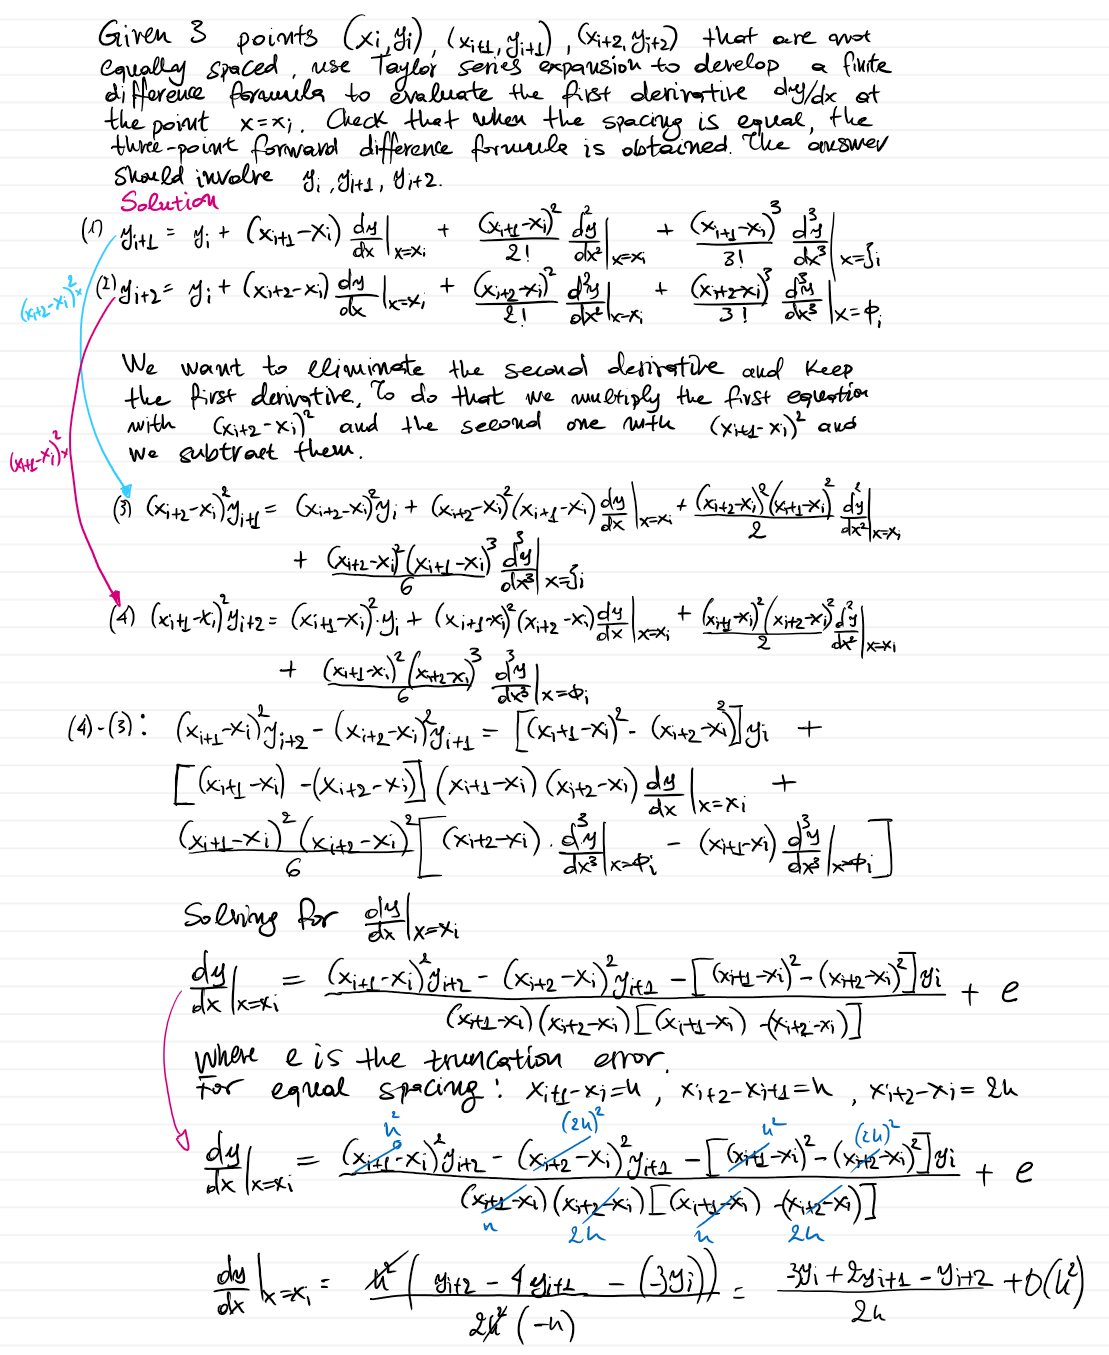 Given 3 points (xi,yi), (xi+1, yi+1), (xi+2, yi+2) that are not
equally spaced, use Taylor series expansion to develop a finite
difference formula to evaluate the first derivative dy/dx at
the point x=xi. Check that when the spacing is equal, the
three-point forward difference formula is obtained. The answer
should involve yi, yi+1, yi+2.
Solution
(1) yi+1 = yi + (xi+1-xi) dy/dx|x=xi + (xi+1-xi)²/2! d²y/dx²|x=xi + (xi+1-xi)³/3! d³y/dx³|x=ξi
(xi+2-xi)²x
(2) yi+2 = yi + (xi+2-xi) dy/dx|x=xi + (xi+2-xi)²/2! d²y/dx²|x=xi + (xi+2-xi)³/3! d³y/dx³|x=φi
We want to eliminate the second derivative and keep
the first derivative, To do that we multiply the first equation
with (xi+2-xi)² and the second one with (xi+1-xi)² and
we subtract them.
(xi+1-xi)²x
(3) (xi+2-xi)²yi+1 = (xi+2-xi)²yi + (xi+2-xi)²(xi+1-xi) dy/dx|x=xi + (xi+2-xi)²(xi+1-xi)²/2 d²y/dx²|x=xi
+ (xi+2-xi)²(xi+1-xi)³/6 d³y/dx³|x=ξi
(4) (xi+1-xi)²yi+2 = (xi+1-xi)²·yi + (xi+1-xi)²(xi+2-xi) dy/dx|x=xi + (xi+1-xi)²(xi+2-xi)²/2 d²y/dx²|x=xi
+ (xi+1-xi)²(xi+2-xi)³/6 d³y/dx³|x=φi
(4)-(3): (xi+1-xi)²yi+2 - (xi+2-xi)²yi+1 = [(xi+1-xi)² - (xi+2-xi)²]yi +
[(xi+1-xi) -(xi+2-xi)] (xi+1-xi) (xi+2-xi) dy/dx|x=xi +
(xi+1-xi)²(xi+2-xi)²/6 [(xi+2-xi) · d³y/dx³|x=φi - (xi+1-xi) d³y/dx³|x=φi]
Solving for dy/dx|x=xi
dy/dx|x=xi = (xi+1-xi)²yi+2 - (xi+2-xi)²yi+1 - [(xi+1-xi)² - (xi+2-xi)²]yi / (xi+1-xi)(xi+2-xi)[(xi+1-xi) -(xi+2-xi)] + e
where e is the truncation error.
For equal spacing: xi+1-xi=h, xi+2-xi+1=h, xi+2-xi=2h
h² (2h)² h² (2h)²
dy/dx|x=xi = (xi+1-xi)²yi+2 - (xi+2-xi)²yi+1 - [(xi+1-xi)² - (xi+2-xi)²]yi / (xi+1-xi)(xi+2-xi)[(xi+1-xi) -(xi+2-xi)] + e
h 2h h 2h
dy/dx|x=xi = h²(yi+2 - 4yi+1 - (-3yi)) / 2h²(-h) = -3yi + 2yi+1 - yi+2 / 2h + O(h²)